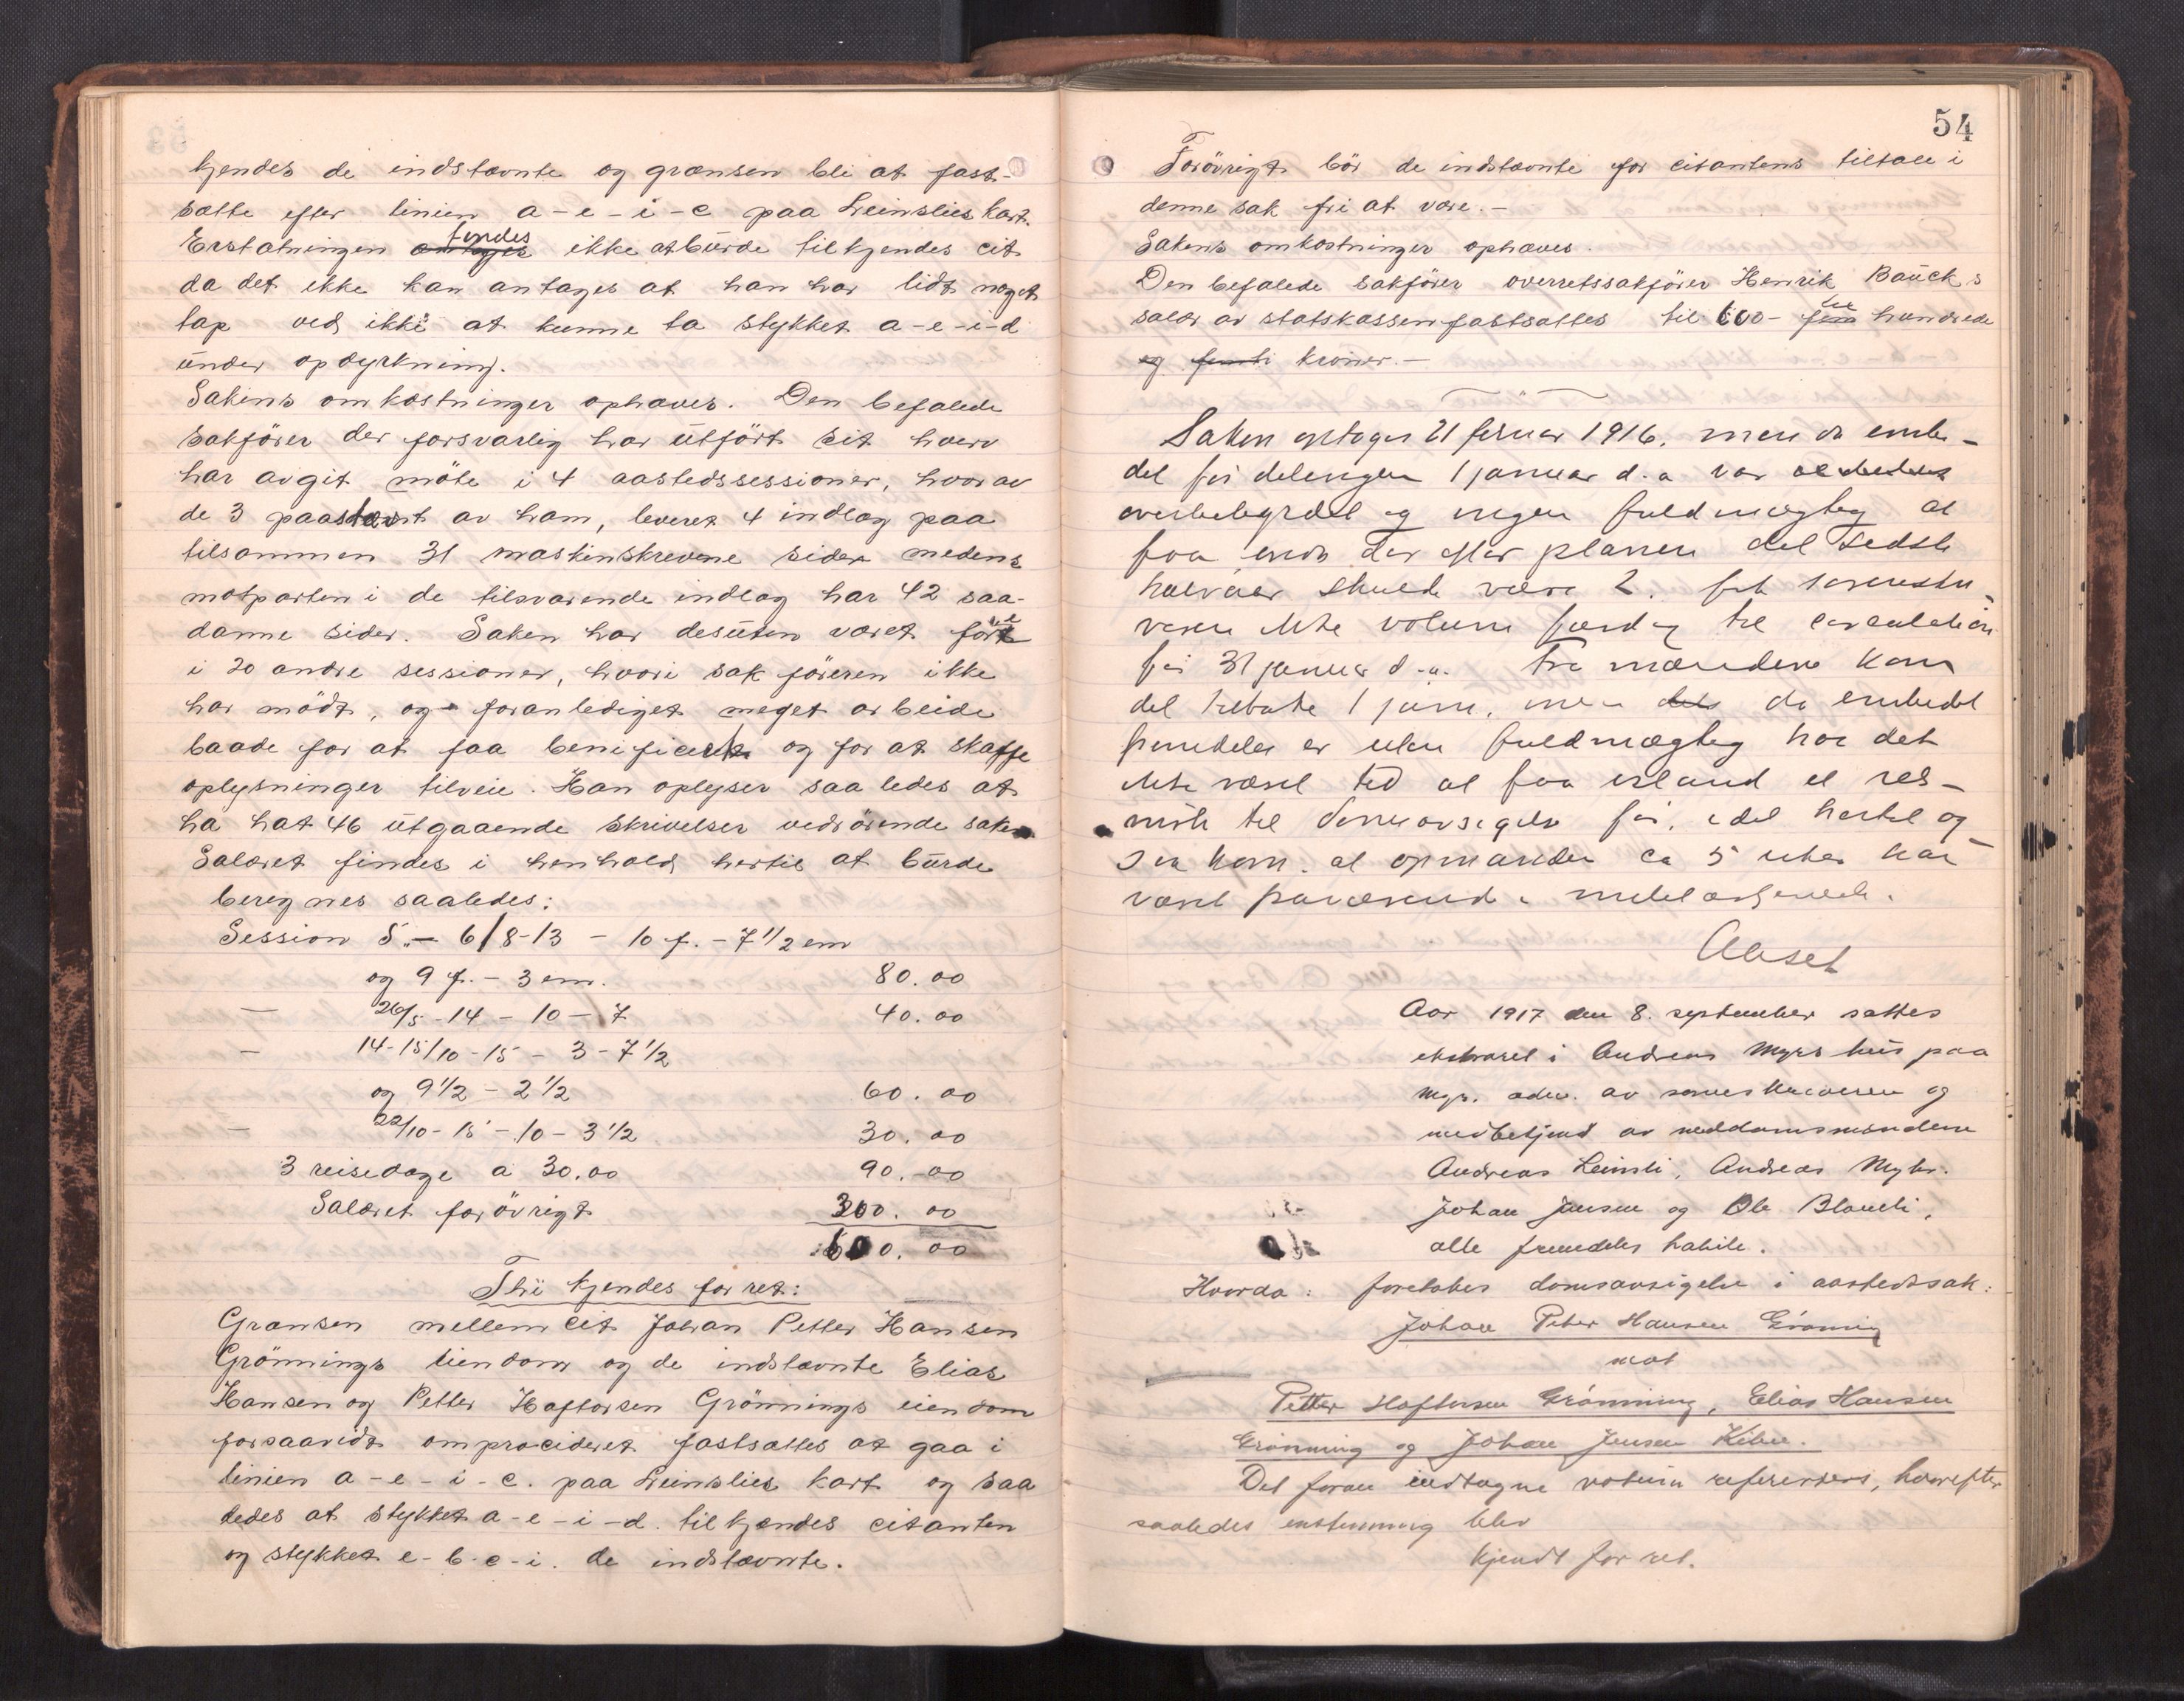 kjendes de indstævnte og grænsen bli at fast-
sætte efter linien a-e-i-c paa Leinslies kart.
Erstatningen findes ikke at burde tilkjendes cit
da det ikke kan antages at han har lidt noget
tap ved ikke at kunne ta stykket a-e-i-d
under opdyrkning.
Sakens omkostninger ophæves. Den befalede
sakfører der forsvarlig har utført sit hverv
har avgit møte i 4 aastedssessioner, hvorav
de 3 paastævnt av ham, leveret 4 indlæg paa
tilsammen 31 maskinskrevne sider medens
motparten i de tilsvarende indlæg har 42 saa-
danne sider. Saken har desuten været
i 20 andre sessioner, hvori sakføreren ikke
har mødt, og foranlediget meget arbeide
baade for at faa og for at skaffe
oplysninger tilveie. Han oplyser saaledes at
ha hat 46 utgaaende skrivelser vedrørende saken
Salæret findes i henhold hertil at burde
beregnes saaledes:
Session 5.- 6/8-13 - 10 f. - 7 1/2 em
og 9 f. - 3 em. 80.00
— 26/5-14 - 10 - 7 40.00
— 14-15/10-15 - 3 - 7 1/2
og 9 1/2 - 2 1/2 60.00
— 22/10-15 - 10 - 3 1/2 30.00
3 reisedage a 30.00 90.00
Salæret forøvrigt 300.00
600.00
Thi kjendes for ret:
Grænsen mellem cit Johan Petter Hansen
Grønnings eiendom og de indstævnte Elias
Hansen og Petter Haftorsen Grønnings eiendom
forsaavidt omprocederet fastsættes at gaa i
linien a-e-i-c. paa Leinslies kart og saa
ledes at stykket a-e-i-d. tilkjendes citanten
og stykket e-b-c-i. de indstævnte.
54
Forøvrigt bør de indstævnte for citantens tiltale i
denne sak fri at være.-
Sakens omkostninger ophæves.
Den befalede sakfører overretssakfører Henrik Baucks
salær av statskassen fastsættes til 600- hundrede
kroner.-
Saken optages 21 februar 1916. men da embe-
det før delingen 1 januar d.a. var
overbebyrdet og ingen fuldmægtig at
faa enda der efter planen det sidste
halvaar skulde være 2. fik sorenskri-
veren ikke votum færdig til circulation
før 31 januar d.a. Fra mændene kom
det tilbake 1 juni. men da embedet
fremdeles er uten fuldmægtig har det
ikke været tid at faa istand et ret-
møte til domsavsigelse før,
at ca 5 uker har
været
Aar 1917 den 8. september sattes
ekstraret i Andreas Myrs hus paa
Myr. adm. av sorenskriveren og
medbetjent av meddomsmændene
Andreas Leinsli, Andreas Myhr.
Johan Jensen og Ole
alle fremdeles habile.
Hvorda: foretokes domsavsigelse i aastedssak:
Johan Peter Hansen Grønning
mot
Petter Haftorsen Grønning, Elias Hansen
Grønning og Johan Jensen
Det foran indtagne votum refereredes, hvorefter
saaledes enstemmig blev
kjendt for ret.